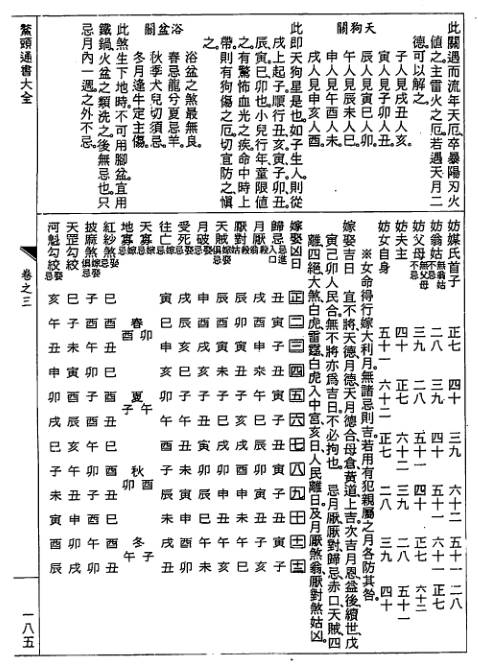 此關遇而流年天厄卒暴陽刃火
值之主雷火之厄若遇天月二
德可以解之
天狗關
子人見戌丑人亥
寅人見子卯人丑
辰人見寅巳人卯
午人見辰未人巳
申人見午酉人未
戌人見申亥人酉
此即天狗星是也如子生人則從
戌上起子順行丑亥寅子卯丑
辰寅巳卯也小兒行年童限值
之有驚怖血光之疾命中時上
帶則有狗傷之厄切宜防之慎
之
浴盆關
浴盆之煞最無良
春忌龍兮夏忌羊
秋季犬兒切須忌
冬月逢牛定主傷
此煞生下地時不可用腳盆宜用
鐵鍋火盆之類洗之後無忌也只
忌月內一週之外不忌
鰲頭通書大全
妨媒氏首子 正七 四十 三九 六十二 五十一 二八
妨翁姑無翁姑不忌 二八 三九 四十 五十一 六十二 正七
妨父母無父母不忌 三九 二八 五十一 四十 正七 六十二
妨夫主 四十 正七 六十二 三九 二八 五十一
妨女自身 五十一 六十二 正七 二八 三九 四十
※女命得行嫁大利月無諸忌則吉若用有犯親屬之月各防其咎
嫁娶吉日 宜不將天德月德天月德合母倉黃道上吉次吉月恩益後續世戊
寅己卯人民合無不將亦為吉日不必拘也 忌月厭厭對歸忌赤口天賊四
離四絕大煞白虎雷霆白虎入中宮亥日人民離日及月厭煞翁厭對煞姑凶
嫁娶凶日 正 二 三 四 五 六 七 八 九 十 十一 十二
歸忌忌進人口 丑 寅 子 丑 寅 子 丑 寅 子 丑 寅 子
月厭煞翁 戌 酉 申 未 午 巳 辰 卯 寅 丑 子 亥
厭對煞姑 辰 卯 寅 丑 子 亥 戌 酉 申 未 午 巳
天賊嫁娶俱忌
月破嫁娶忌 申 酉 戌 亥 子 丑 寅 卯 辰 巳 午 未
受死嫁忌 戌 辰 亥 巳 子 午 丑 未 寅 申 卯 酉
往亡嫁忌 寅 巳 申 亥 卯 午 酉 子 辰 未 戌 丑
天寡嫁忌
地寡嫁忌
春 夏 秋 冬
紅紗煞娶忌 巳 酉 丑 巳 酉 丑 巳 酉 丑 巳 酉 丑
披麻煞俱忌嫁娶 子 酉 午 卯 子 酉 午 卯 子 酉 午 卯
天罡勾絞 巳 子 未 寅 酉 辰 亥 午 丑 申 卯 戌
河魁勾絞 亥 午 丑 申 卯 戌 巳 子 未 寅 酉 辰
卷之三
一八五